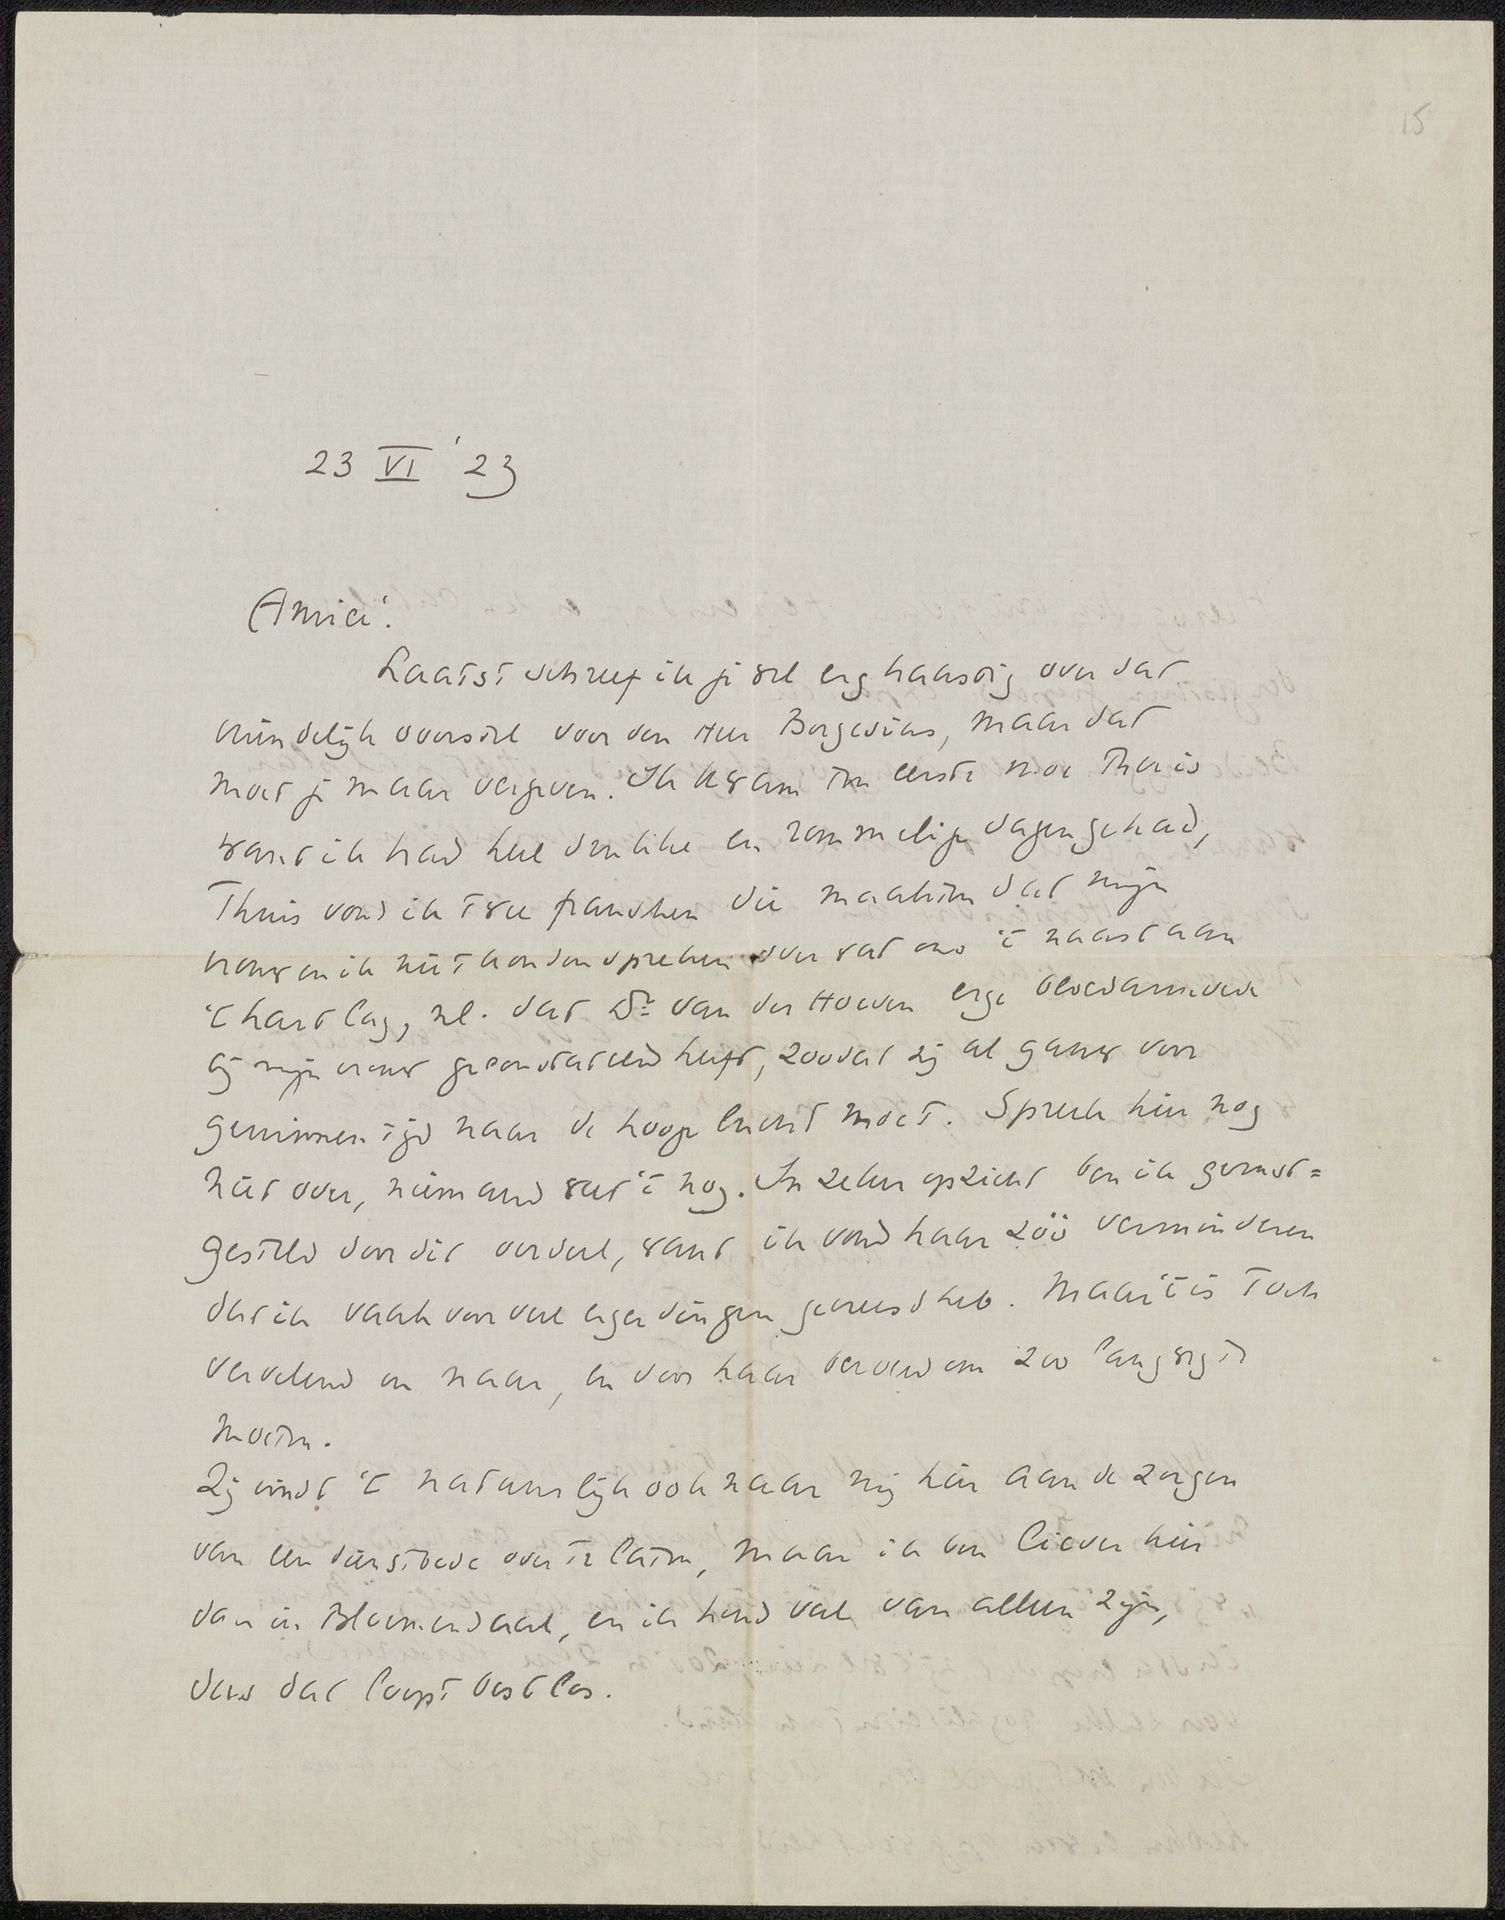 15
23 VI '23
Amice!
Laatst schreef ik je wel erg haastig over dat
vriendelijk voorstel voor den Heer Borgesius, maar dat
moet je maar vergeven. Ik kwam ten eerste moe thuis
want ik had heel drukke en rommelige dagen gehad,
Thuis vond ik twee die maakten dat mijn
vrouw en ik niet konden spreken over wat ons 't naast aan
't hart lag, nl. dat Dr. van der Hoeven erge bloedarmoede
bij mijn vrouw geconstateerd heeft, zoodat zij al gauw voor
geruimen tijd naar de hooge lucht moet. Spreek hier nog
niet over, niemand weet 't nog. In zeker opzicht ben ik gerust=
gesteld door dit oordeel, want ik vond haar zóó verminderen
dat ik vaak voor veel erger dingen gevreesd heb. Maar 't is toch
vervelend en naar, en voor haar om zoo lang weg te
moeten.
Zij vindt 't natuurlijk ook naar mij hier aan de zorgen
van een dienstbode over te laten, maar ik ben liever hier
dan in Bloemendaal, en ik houd veel van alleen zijn,
dus dat loopt best los.